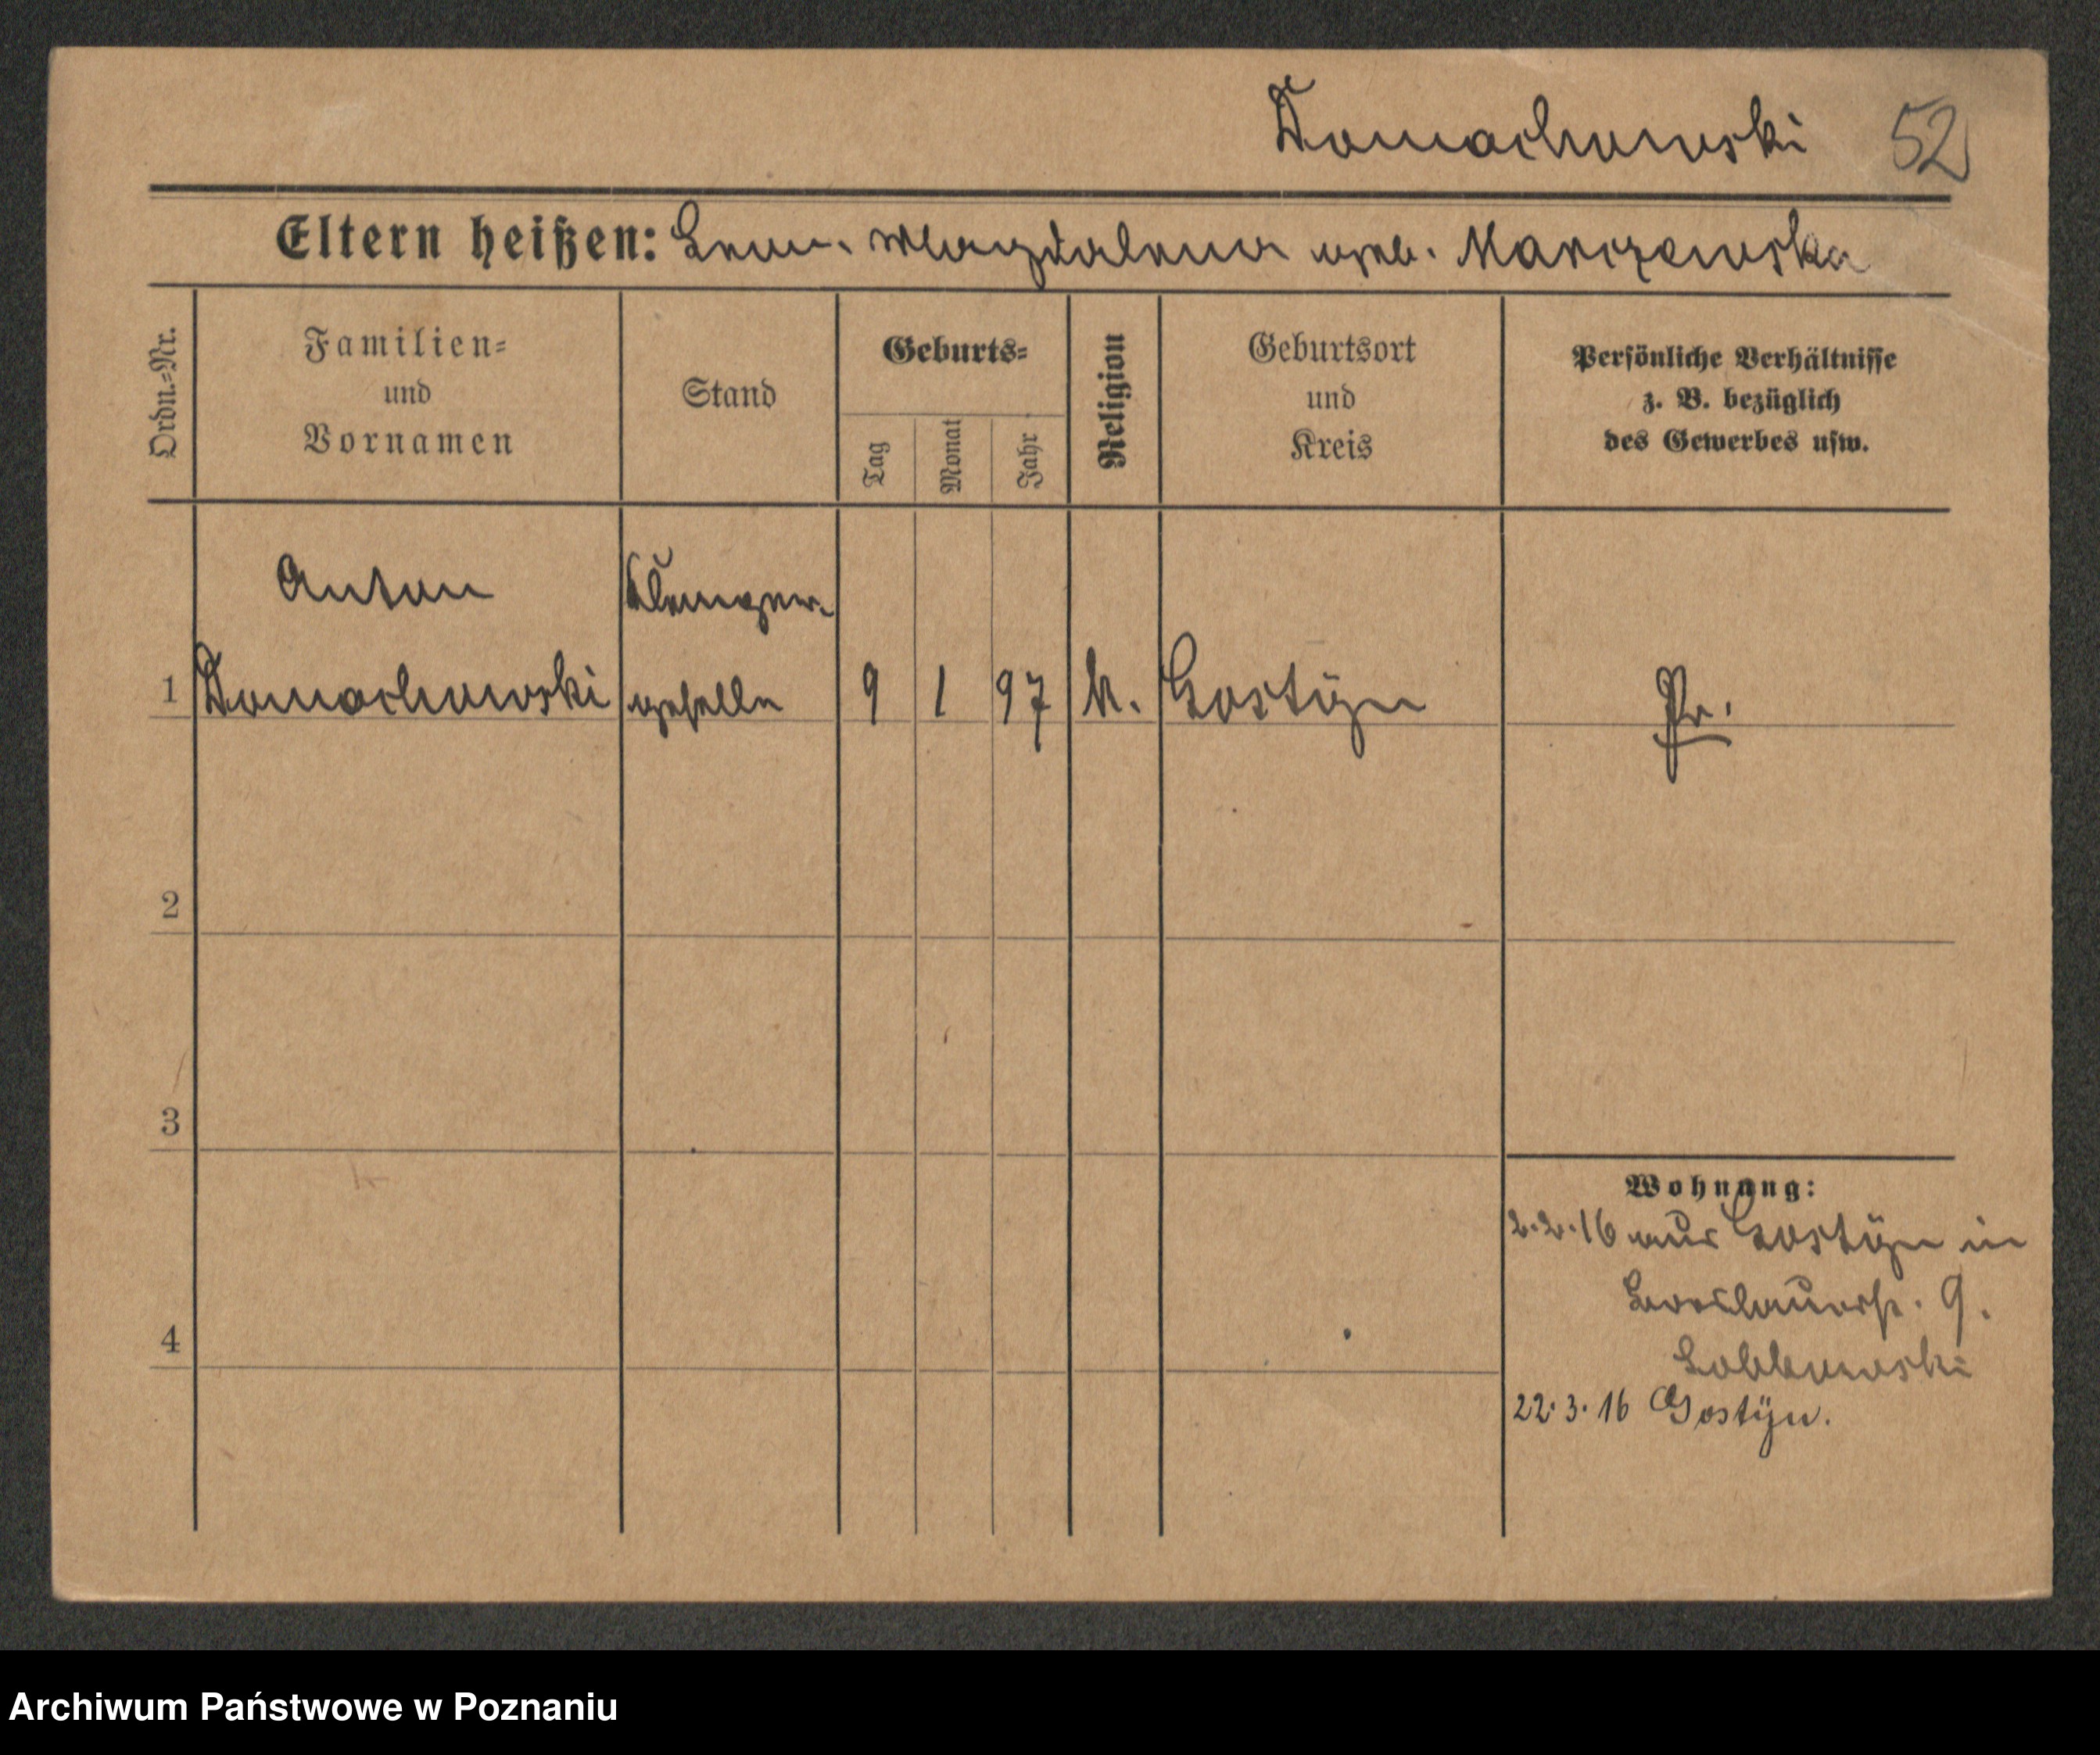 Domachowski 52
Eltern heißen: Leon. Magdalena geb. Marczewska
Ordn.=Nr.
Familien=
und
Vornamen
Stand
Geburts=
Tag
Monat
Jahr
Religion
Geburtsort
und
Kreis
Persönliche Verhältnisse
z. B. bezüglich
des Gewerbes usw.
Anton
Klempner-
1 Domachowski geselle 9 1 97 k. Gostyn Pr.
2
3
Wohnung:
2.2.16 aus Gostyn in
9.
4
22.3.16 Gostyn.
Archiwum Państwowe w Poznaniu